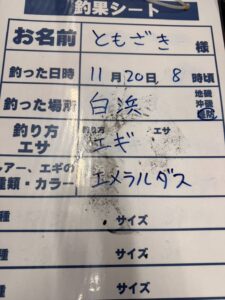 釣果シート
お名前 ともざき 様
釣った日時 11月20日, 8時頃
釣った場所 白浜 地磯 沖磯
釣り方 釣り方 エサ
エサ エギ
ルアー、エギの
種類・カラー エメラルダス
種 サイズ
種 サイズ
種 サイズ